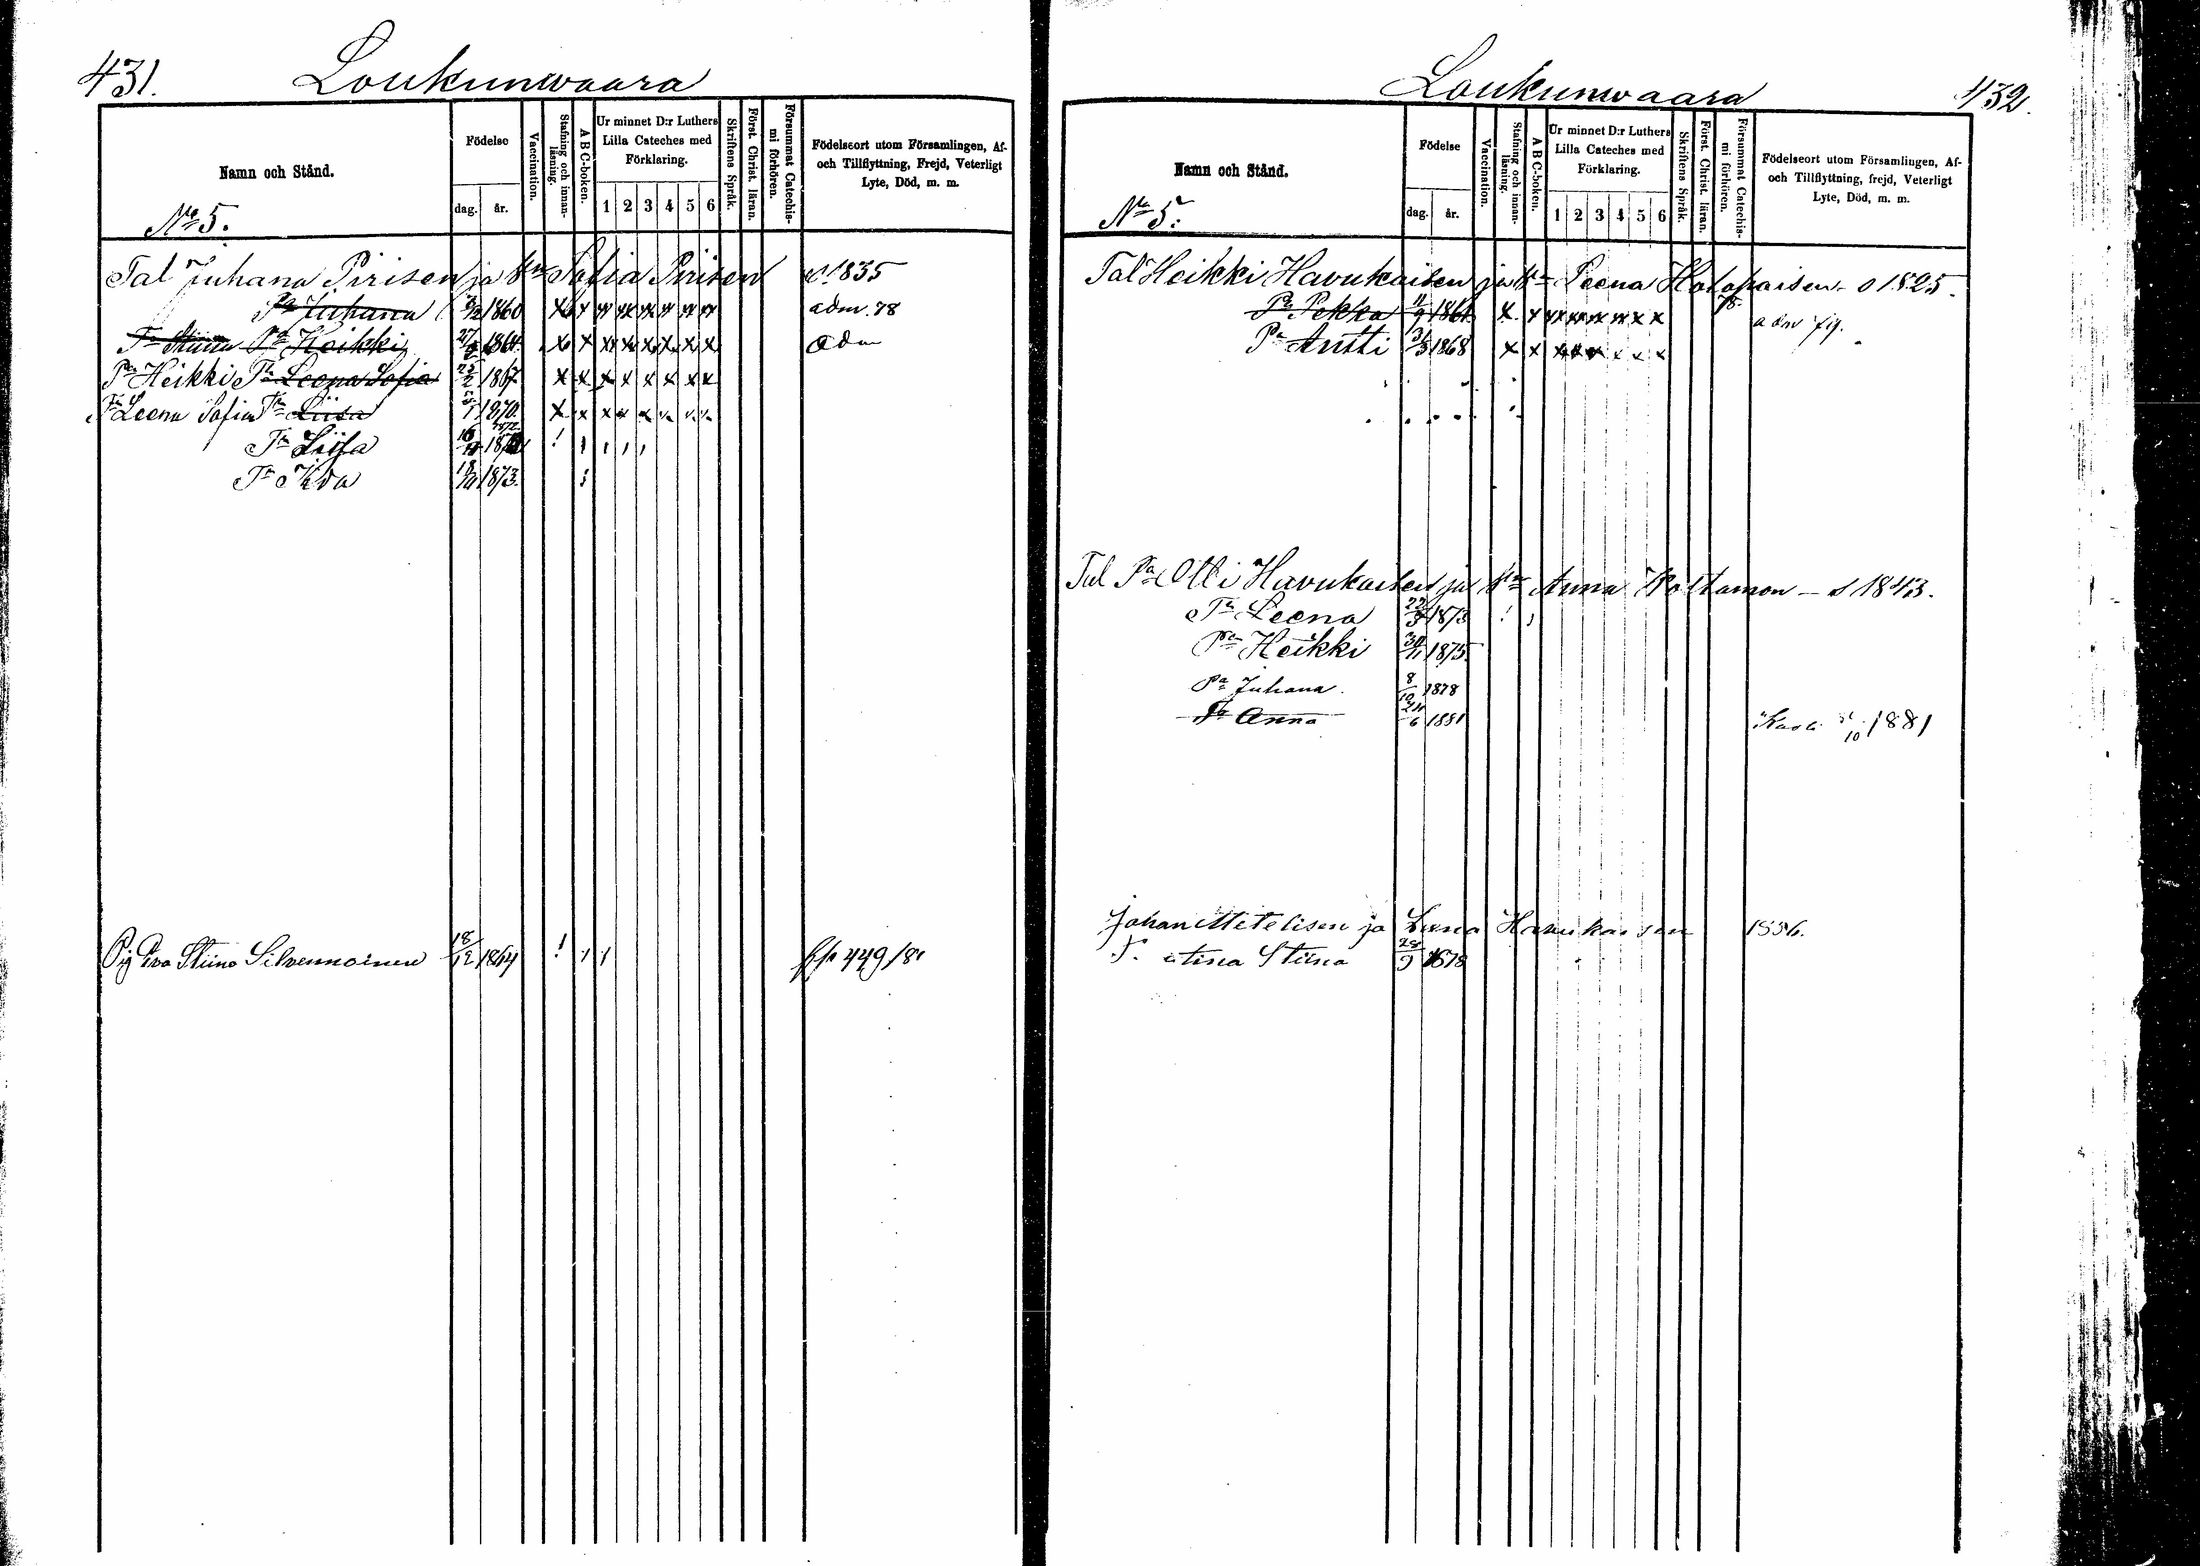 431.
Loukunwaara
Namn och Stånd.
Födelse
dag. år.
Vaccination.
Stafning och innanläsning.
A B C-boken.
Ur minnet D:r Luthers Lilla Cateches med Förklaring.
1 2 3 4 5 6
Skriftens Språk.
Förstr. Christ. läran.
Försummat Catechismi förhören.
Födelseort utom Församlingen, Af- och Tillflyttning, Frejd, Veterligt Lyte, Död, m. m.
No 5.
Tal Juhana Pirisen ja Sofia Pirisen s. 1835
Pa Juhana 1860 adm. 78
Tr Stiina Pa Heikki 1864 adm
Pa Heikki Tr Leena Sofia 1867
Tr Leena Sofia Tr Liisa 1870.
Tr Liisa
Tr Eva 1873.
Pig Eva Stiina Silvennoinen 18/12 1864 449/81
432.
Loukunwaara
Namn och Stånd.
Födelse
dag. år.
Vaccination.
Stafning och innanläsning.
A B C-boken.
Ur minnet D:r Luthers Lilla Cateches med Förklaring.
1 2 3 4 5 6
Skriftens Språk.
Först. Christ. läran.
Försummat Catechismi förhören.
Födelseort utom Församlingen, Af- och Tillflyttning, frejd, Veterligt Lyte, Död, m. m.
No 5.
Tal Heikki Havukaisen ja Leena Holopaisen s 1825.
Pa Pekka 1861 adm 79.
Pa Antti 1868
Tal Pa Olli Havukaisen ja Anna Rottamon – s 1843.
Tr Leena 1873
Pa Heikki 30/11 1875
Pa Juhana 8/10 1878
Tr Anna 24/6 1881 Kuoli 10 1881
Johan Mitelisen ja Leena Havukaisen 1836.
T. Stiina 28/9 1878